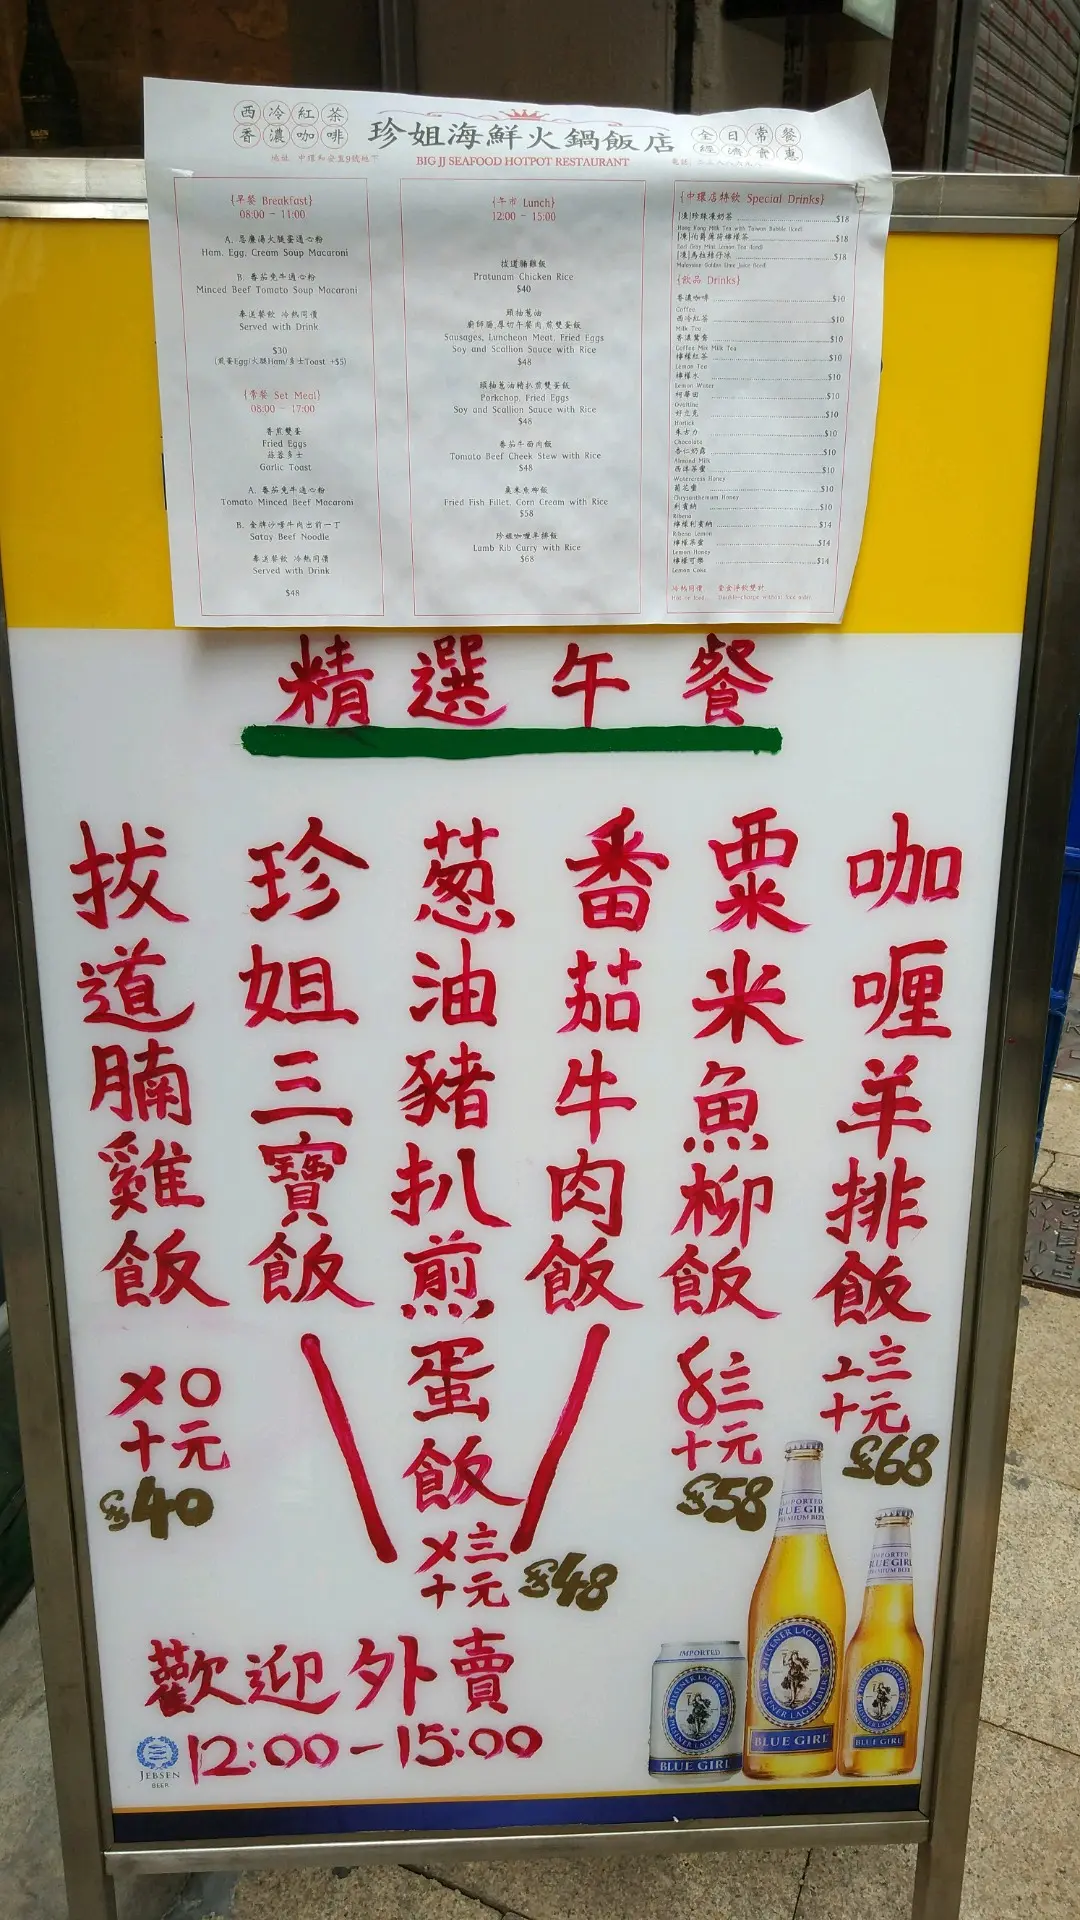 西冷紅茶
香濃咖啡
珍姐海鮮火鍋飯店
BIG JJ SEAFOOD HOTPOT RESTAURANT
全日常餐
經濟實惠
{早餐 Breakfast}
08:00 - 11:00
Ham, Egg, Cream Soup Macaroni
B. 番茄免牛通心粉
Minced Beef Tomato Soup Macaroni
奉送餐飲 冷熱同價
Served with Drink
$30
(煎蛋Egg/火腿Ham/多士Toast +$5)
{常餐 Set Meal}
08:00 - 17:00
香煎雙蛋
Fried Eggs
蒜蓉多士
Garlic Toast
A. 番茄免牛通心粉
Tomato Minced Beef Macaroni
B. 金牌沙嗲牛肉出前一丁
Satay Beef Noodle
奉送餐飲 冷熱同價
Served with Drink
$48
{午市 Lunch}
12:00 - 15:00
拔道腩雞飯
Pratunam Chicken Rice
$40
頭抽葱油
廚師腸.厚切午餐肉.煎雙蛋飯
Sausages, Luncheon Meat, Fried Eggs
Soy and Scallion Sauce with Rice
$48
頭抽葱油豬扒煎雙蛋飯
Porkchop, Fried Eggs
Soy and Scallion Sauce with Rice
$48
番茄牛面肉飯
Tomato Beef Cheek Stew with Rice
$48
粟米魚柳飯
Fried Fish Fillet, Corn Cream with Rice
$58
珍姐咖喱羊排飯
Lamb Rib Curry with Rice
$68
{中環店特飲 Special Drinks}
[凍]珍珠凍奶茶 $18
Hong Kong Milk Tea with Taiwan Bubble (Iced)
[凍]伯爵薄荷檸檬茶 $18
Earl Gray Mint Lemon Tea (Iced)
[凍]馬拉桔仔冰 $18
{飲品 Drinks}
香濃咖啡 $10
Coffee
西冷紅茶 $10
Milk Tea
香濃鴛鴦 $10
Coffee Mix Milk Tea
檸檬紅茶 $10
Lemon Tea
檸檬水 $10
Lemon Water
阿華田 $10
Ovaltine
好立克 $10
Horlick
朱古力 $10
Chocolate
杏仁奶露 $10
Almond Milk
西洋菜蜜 $10
Watercress Honey
菊花蜜 $10
Chrysanthemum Honey
利賓納 $10
Ribena
檸檬利賓納 $14
Ribena Lemon
檸檬菜蜜 $14
Lemon Honey
檸檬可樂 $14
Lemon Coke
精選午餐
拔道腩雞飯
〤〇
十元
$40
珍姐三寶飯
葱油豬扒煎蛋飯
番茄牛肉飯
〤三
十元
$48
粟米魚柳飯
〥三
十元
$58
咖喱羊排飯
〦三
十元
$68
歡迎外賣
12:00-15:00
JEBSEN
BEER
IMPORTED
PILSENER LAGER BEER
BLUE GIRL
IMPORTED
BLUE GIRL
PREMIUM BEER
PILSENER LAGER BIER
BLUE GIRL
IMPORTED
BLUE GIRL
BLUE GIRL